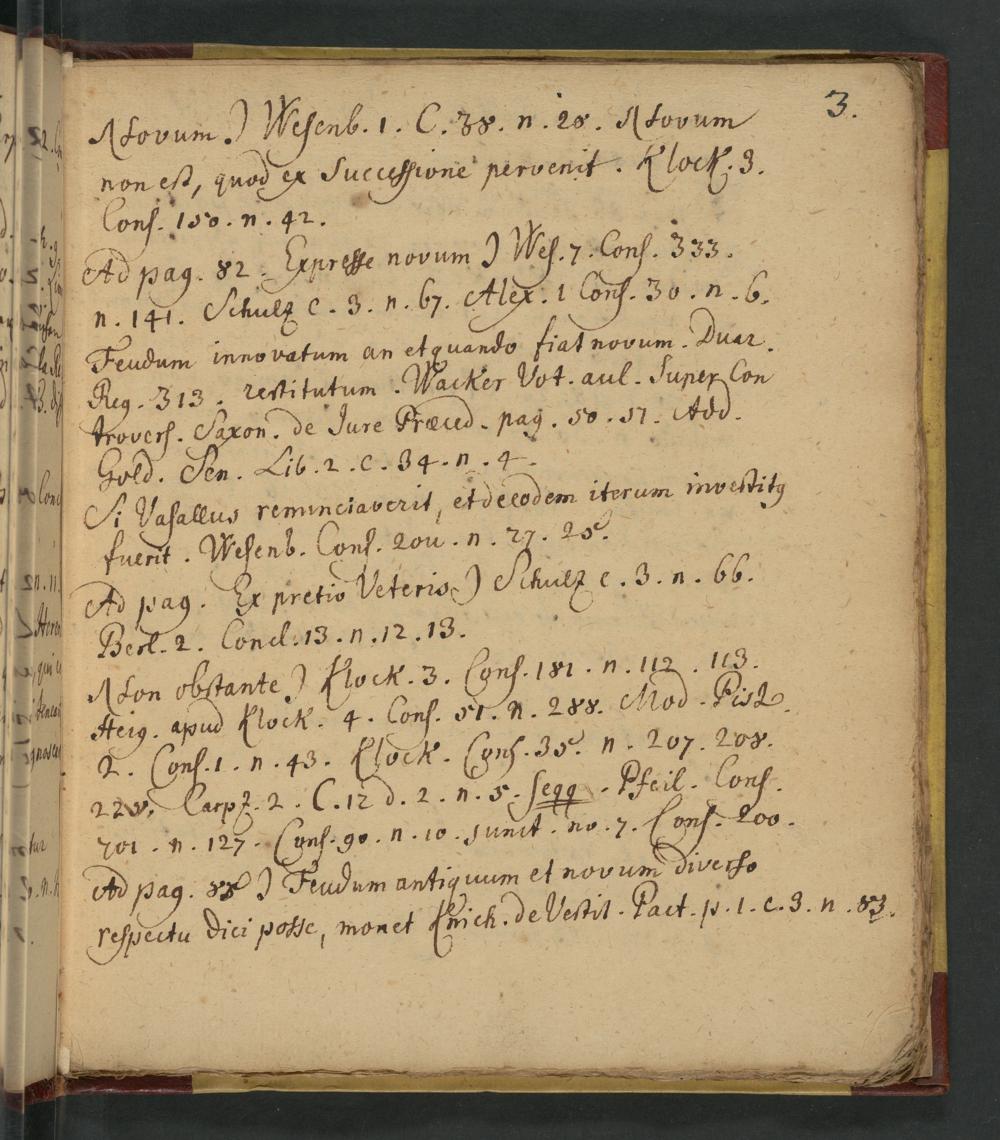 3.
Novum) Wesenb. 1. C. 38. n. 28. Novum
non est, quod ex Successione pervenit. Klock. 3.
Cons. 150. n. 42.
Ad pag. 82. Expresse novum) Wes. 7. Cons. 333.
n. 141. Schulz c. 3. n. 67. Alex. 1 Cons. 30. n. 6.
Feudum innovatum an et quando fiat novum. Duar.
Reg. 313. restitutum. Wacker Vot. aul. Super Con
trovers. Saxon. de Jure Præced. pag. 50. 51. Add.
Gold. Sen. Lib. 2. c. 34. n. 4.
Si Vasallus renunciaverit, et de eodem iterum investitq
fuerit. Wesenb. Cons. n. 27. 25.
Ad pag. Ex pretio Veteris) Schulz c. 3. n. 66.
Berl. 2. Concl. 13. n. 12. 13.
Non obstante) Klock. 3. Cons. 181. n. 112. 113.
Heig. apud Klock. 4. Cons. 51. n. 288. Mod. Pist.
2. Cons. 1. n. 43. Klock. Cons. 35. n. 207. 208.
Carpz. 2. C. 12 d. 2. n. 5. seqq. Pfeil. Cons.
701. n. 127. Cons. 90. n. 10. junct. no. 7. Cons. 200.
Ad pag. 88) Feudum antiquum et novum diverso
respectu dici posse, monet Knich. de Vestit. Pact. p. 1. c. 3. n. 83.